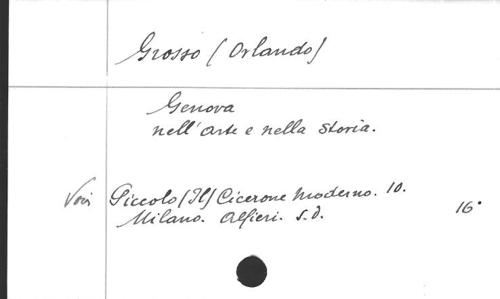 Grosso (Orlando)
Genova
nell'arte e nella storia.
Voci Piccolo (Il) Cicerone moderno. 10.
Milano. Alfieri. s.d. 16°